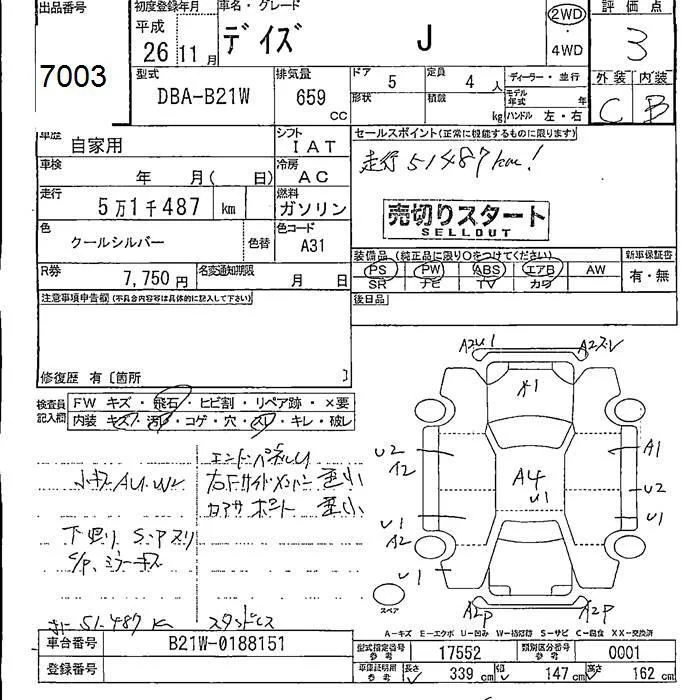 出品番号
7003
初度登録年月
平成
26年 11月
車名・グレード
デイズ J
2WD
・
4WD
評価点
3
外装 内装
C B
型式
DBA-B21W
排気量
659 CC
ドア 5
定員 4人
形状
積載 kg
ディーラー・並行
モデル年式 年
ハンドル 左・右
車歴
自家用
シフト
IAT
車検
年 月( 日)
冷房
AC
走行
5万1千487 km
燃料
ガソリン
色
クールシルバー
色替
色コード
A31
R券
7,750円
名変通知期限
月 日
セールスポイント(正常に機能するものに限ります)
走行51487km!
売切りスタート
SELLOUT
装備品 (純正品に限り○をつけてください)
PS PW ABS エアB AW
SR ナビ TV カワ
新車保証書
有・無
後日品
注意事項申告欄(不具合内容等は具体的に記入して下さい)
修復歴 有〔箇所 〕
検査員記入欄
FW キズ・飛石・ヒビ割・リペア跡・×要
内装 キズ・汚れ・コゲ・穴・スレ・キレ・破レ
小キズAU.W2
下廻り S.アスリ
51.487K
スタッドレス
A2U1
X1
U2
A2
A1
A4
U1
U2
U1
A2
U1
U1
A2P
A2P
スペア
A-キズ E-エクボ U-凹み W-補修跡 S-サビ C-腐食 XX-交換済
車台番号
B21W-0188151
登録番号
型式指定番号 参考
17552
類別区分番号 参考
0001
車庫証明用 参考
長さ 339 cm
幅 147 cm
高さ 162 cm